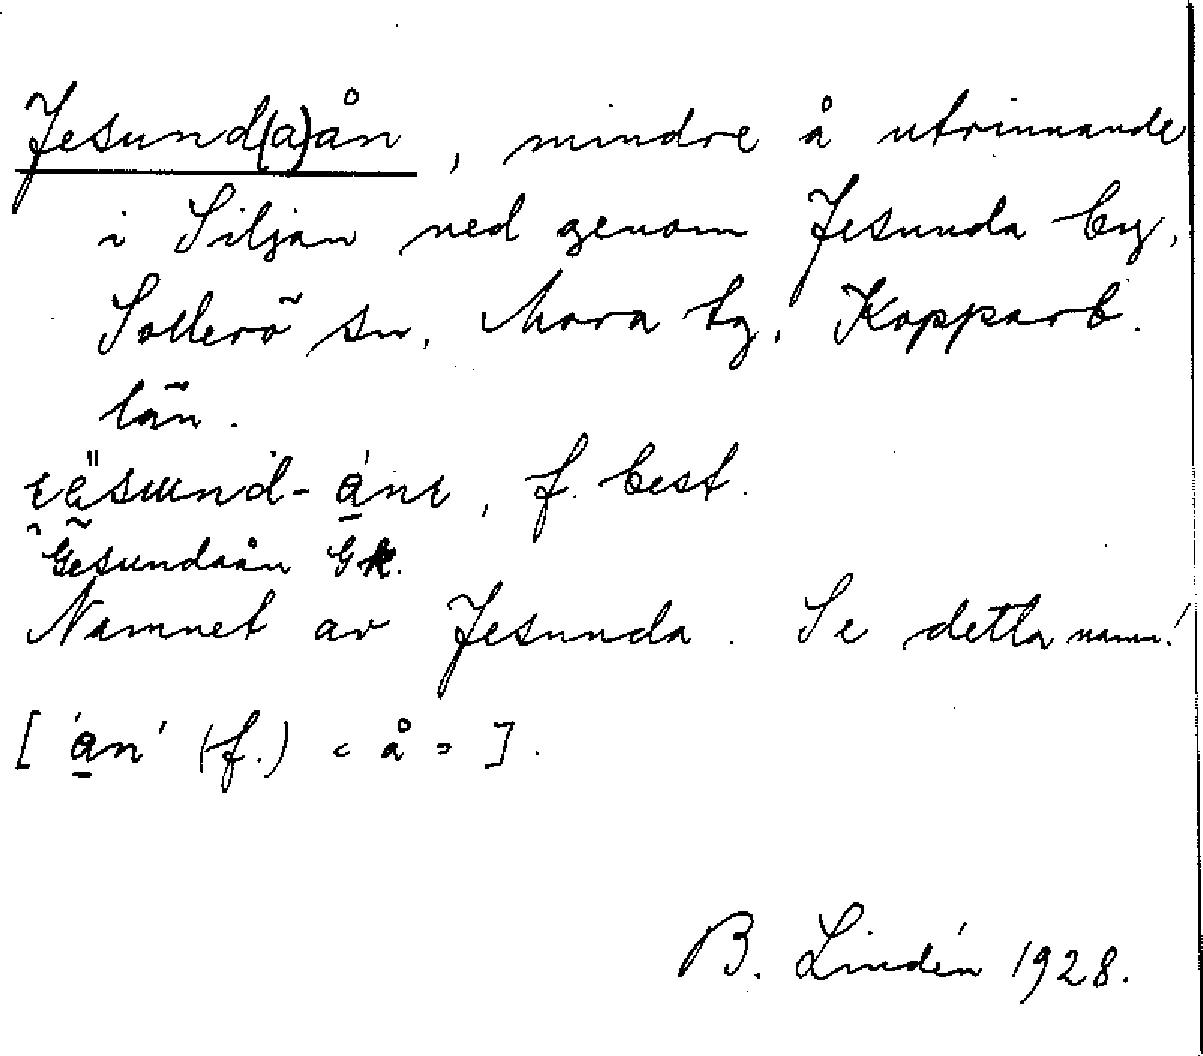 Jesund(a)ån, mindre å utrinnande
i Siljan ned genom Jesunda by,
Sollerö sn, Mora tg, Kopparb.
län.
f. best.
Gesundaån Gk.
Namnet av Jesunda. Se detta namn!
[ 'an' (f.) < å = ].
B. Lindén 1928.